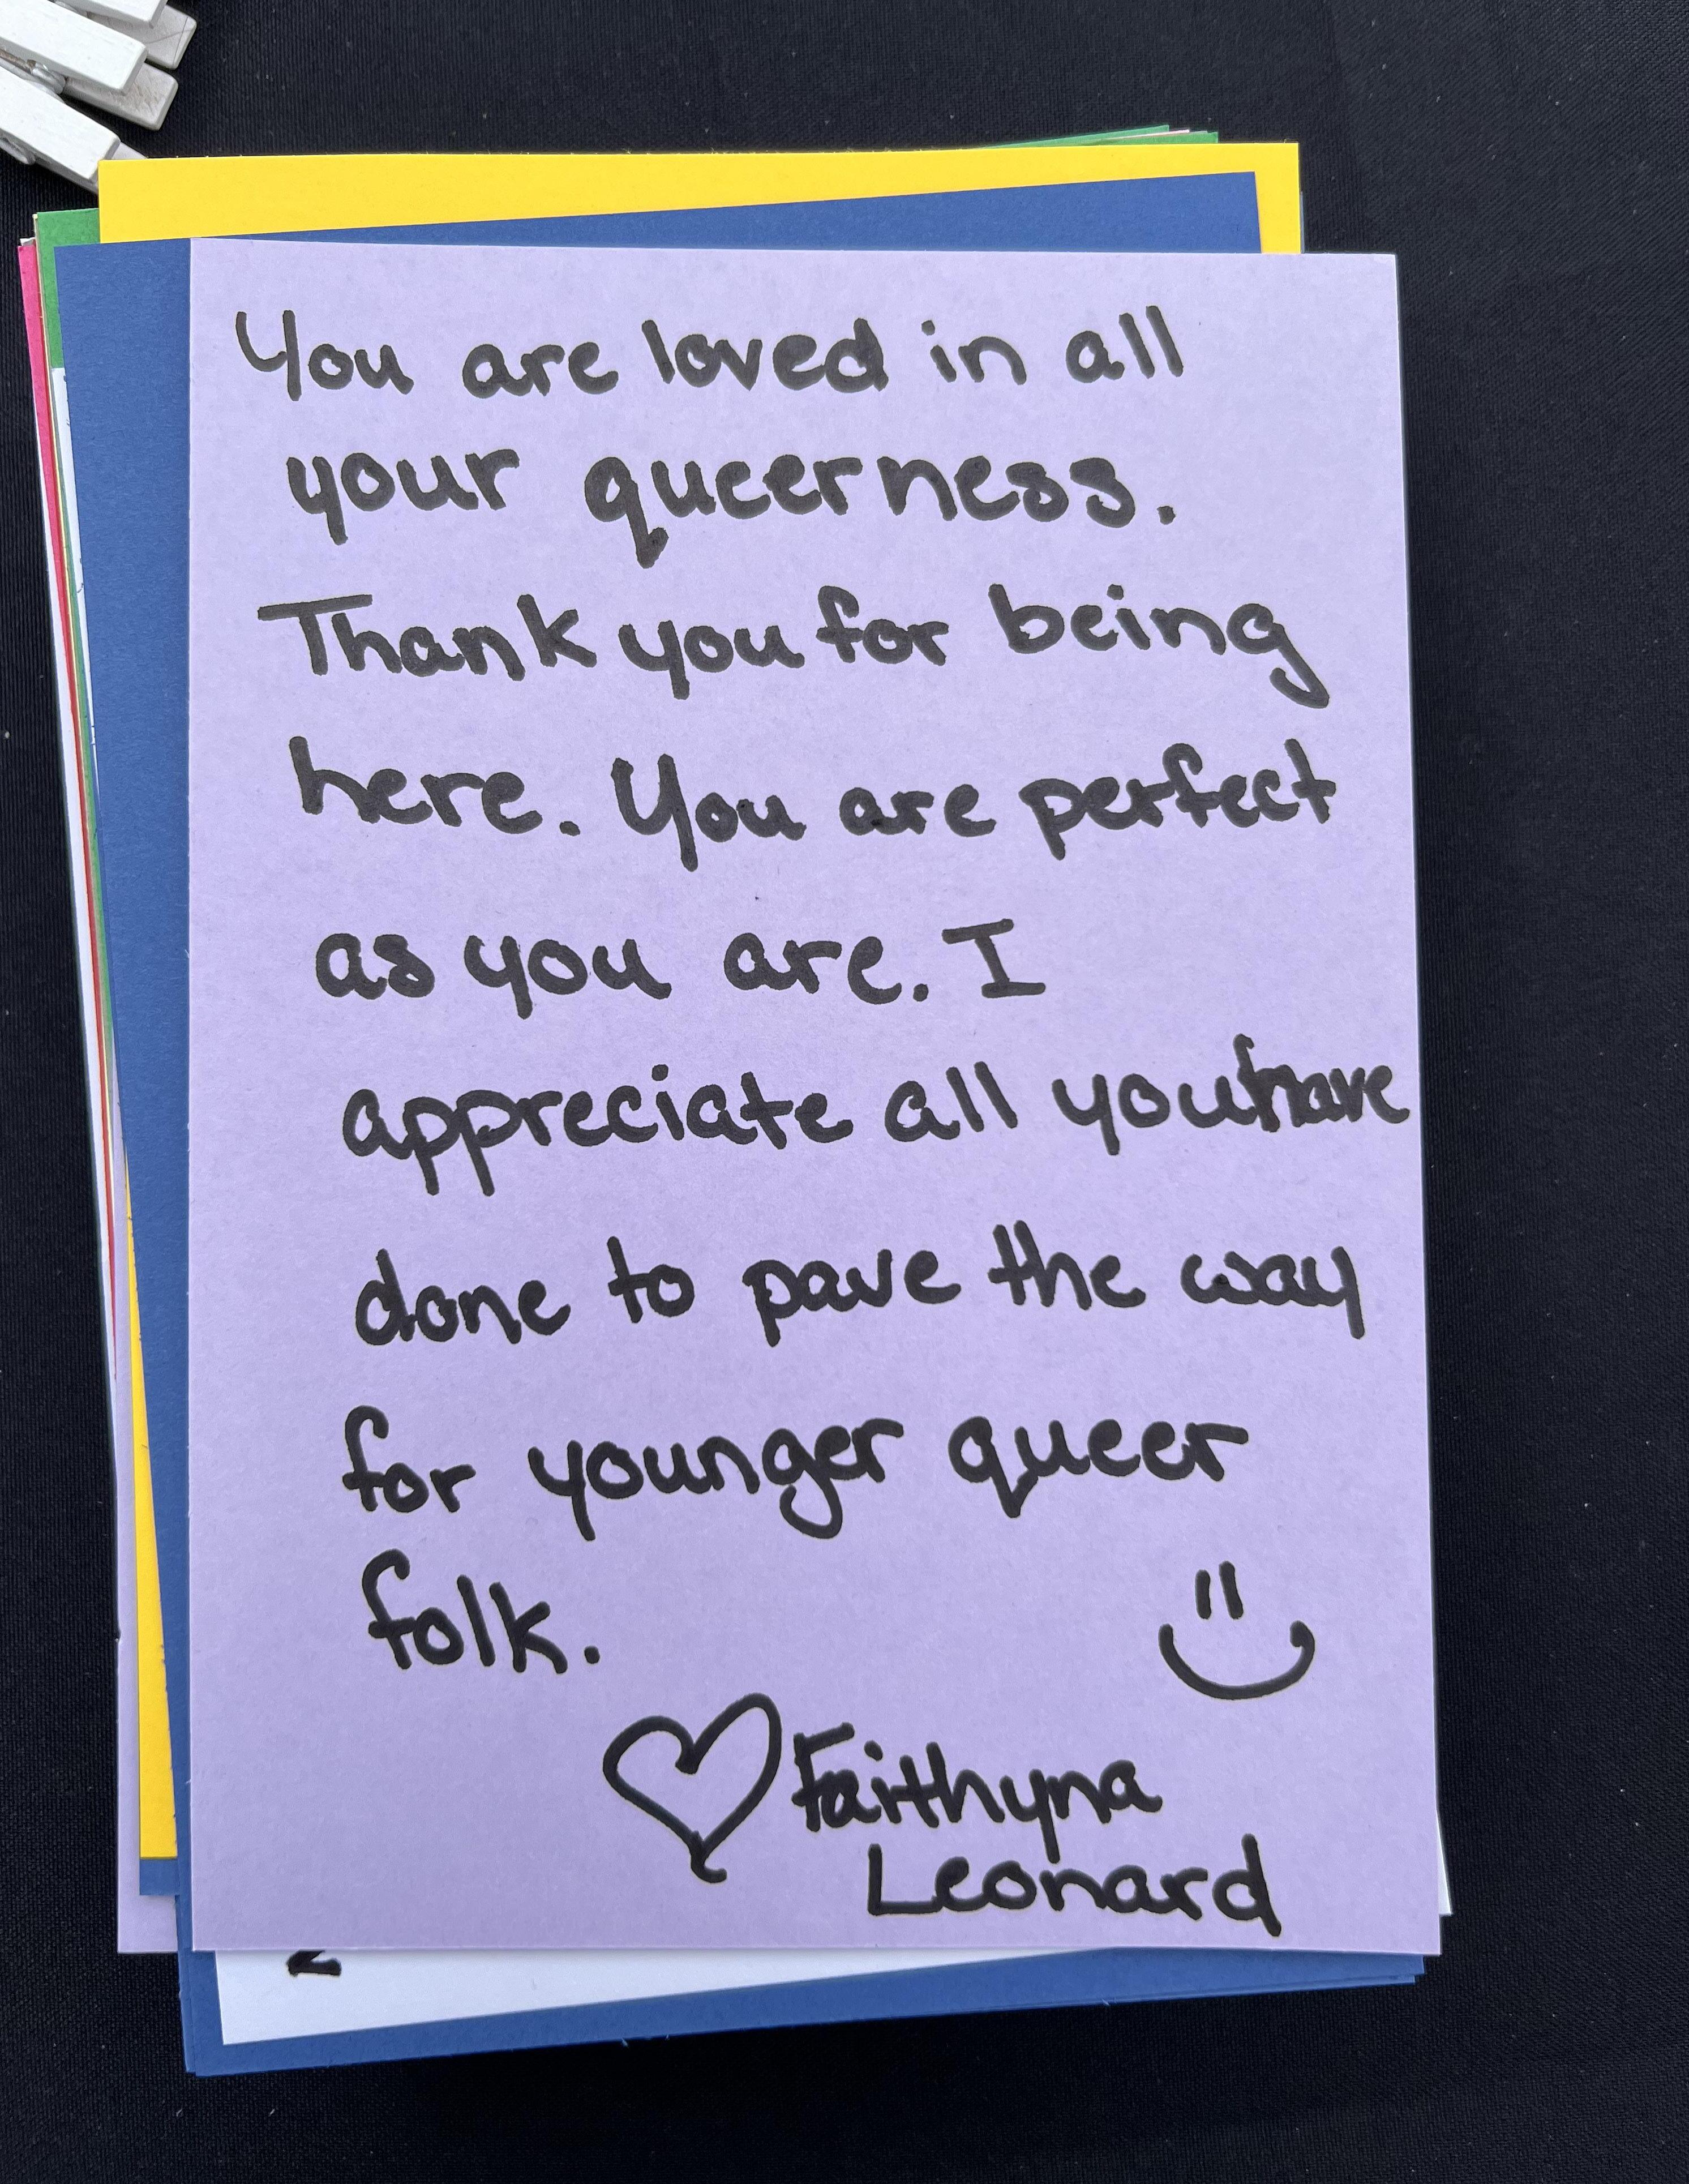 You are loved in all
your queerness.
Thank you for being
here. You are perfect
as you are. I
appreciate all you have
done to pave the way
for younger queer
folk.
Faithyna
Leonard